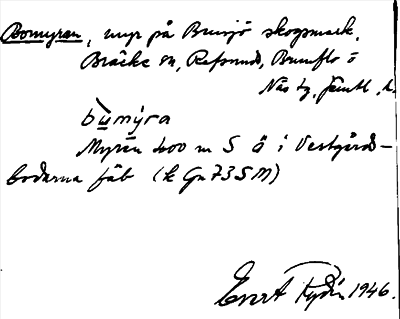 Bomyran, myr på Bensjö skogsmark,
Bräcke sn, Refsunds, Brunflo o
Näs tg, Jämtl. l.
bu̲mỳra
Myren 400 m S ö i Vestgårds-
bodarna fäb (k Gn 73 SM)
Evert Rydén 1946.